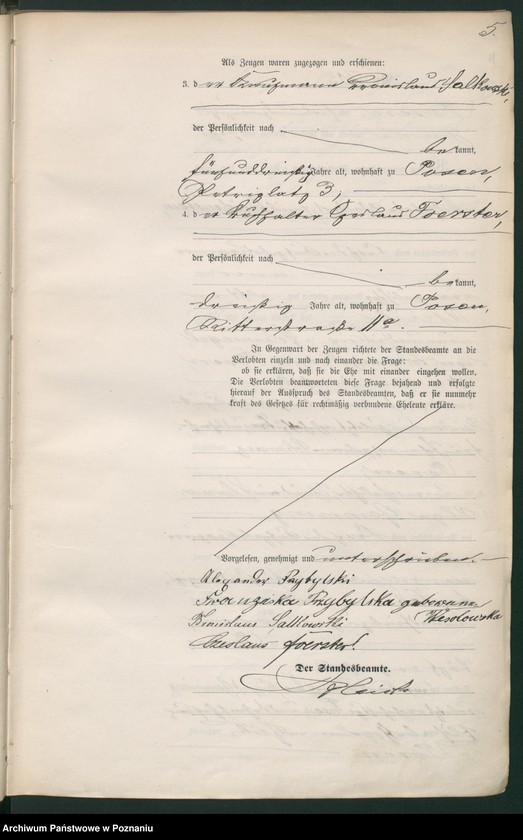 5.
Als Zeugen waren zugezogen und erschienen:
3. der Kaufmann Bronislaus Salkowski,
der Persönlichkeit nach
bekannt,
fünfunddreißig Jahre alt, wohnhaft zu Posen,
Petriplatz 3,
4. der Buchhalter Czeslaus Foerster,
der Persönlichkeit nach
bekannt,
dreißig Jahre alt, wohnhaft zu Posen,
Ritterstraße 11a.
In Gegenwart der Zeugen richtete der Standesbeamte an die
Verlobten einzeln und nach einander die Frage:
ob sie erklären, daß sie die Ehe mit einander eingehen wollen.
Die Verlobten beantworteten diese Frage bejahend und erfolgte
hierauf der Ausspruch des Standesbeamten, daß er sie nunmehr
kraft des Gesetzes für rechtmäßig verbundene Eheleute erkläre.
Vorgelesen, genehmigt und unterschrieben.
Alexander Przybylski
Franziska Przybylska geborene
Wesolowska
Bronislaus Salkowski
Czeslaus Foerster.
Der Standesbeamte.
Archiwum Państwowe w Poznaniu